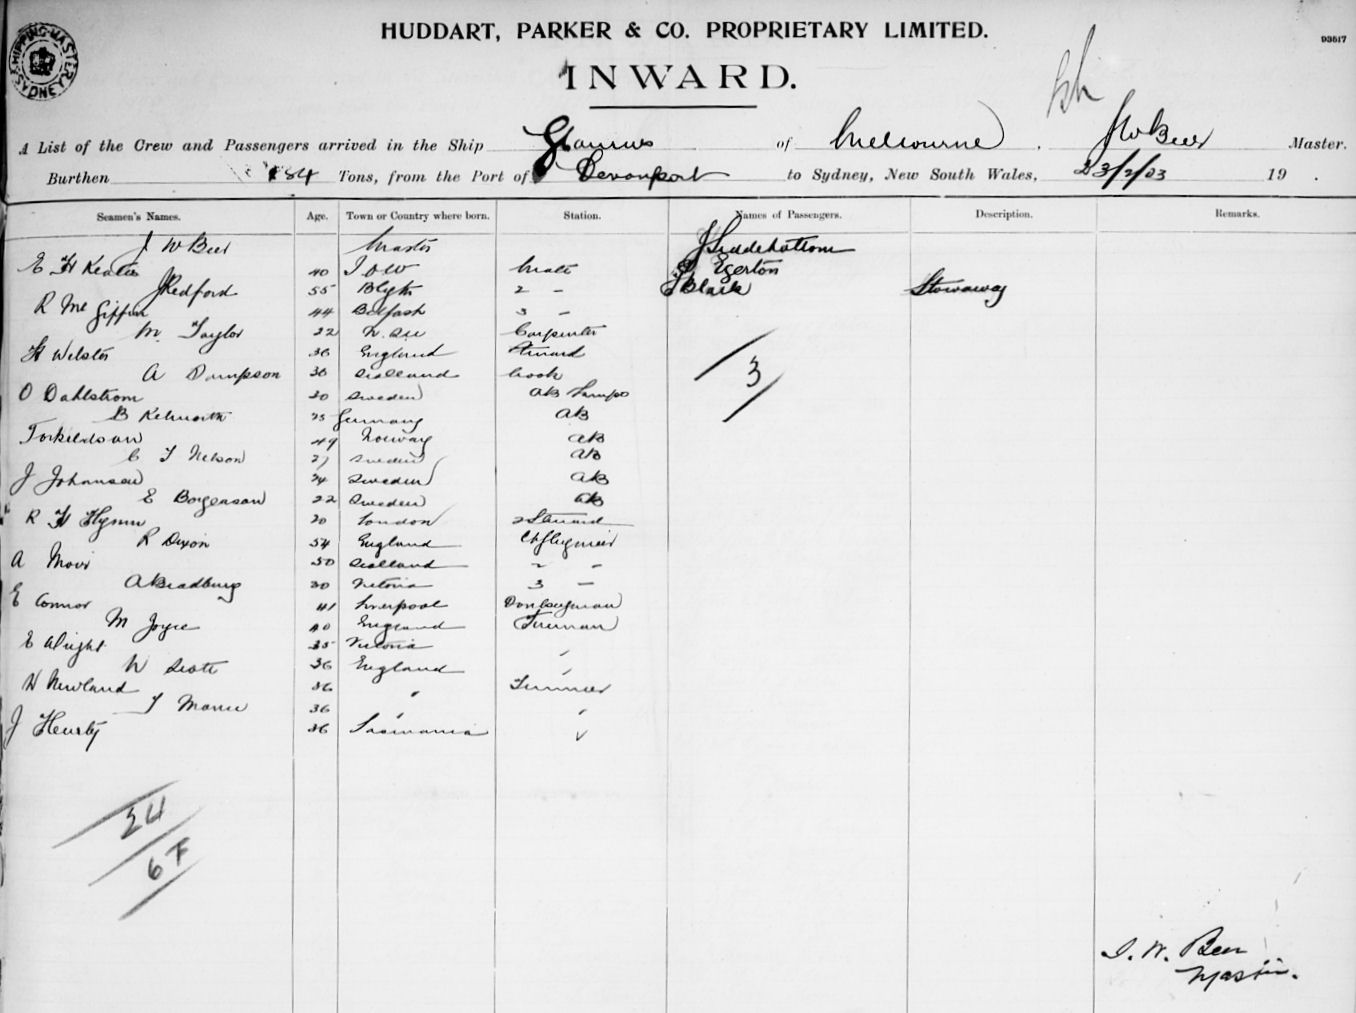 SHIPPING MASTER SYDNEY
HUDDART, PARKER & CO. PROPRIETARY LIMITED.
93517
INWARD.
A List of the Crew and Passengers arrived in the Ship of Melbourne. J W Beer Master.
Burthen Tons, from the Port of Devonport to Sydney, New South Wales, 23/2/03 19 .
Seamen's Names. Age. Town or Country where born. Station. Names of Passengers. Description. Remarks.
J W Beer Master
E H 40 I O W Mate Egerton
J Redford 55 Blyth 2 - Black Stowaway
R Mc Giffin 44 Belfast 3 -
M Taylor 22 Carpenter
H Webster 36 England Steward
A Dampson 36 Scotland Cook
O Dahlstrom 30 Sweden AB Lamps
B 25 Germany AB
49 Norway AB
C T Nelson 27 Sweden AB
J Johansen 24 Sweden AB
E Borgeason 22 Sweden AB
R H Hymn 20 London 2 Steward
R Dixon 54 England
A Moir 50 Scotland 2 -
A Bradbury 30 Victoria 3 -
E Connor 41 Liverpool Donkeyman
M Joyce 40 England Fireman
E Wright 35 Victoria "
W Scott 36 England "
H Newland 36 " Trimmer
36 " "
J Heurty 36 Tasmania "
3
24
6 F
J. W. Beer
Master.